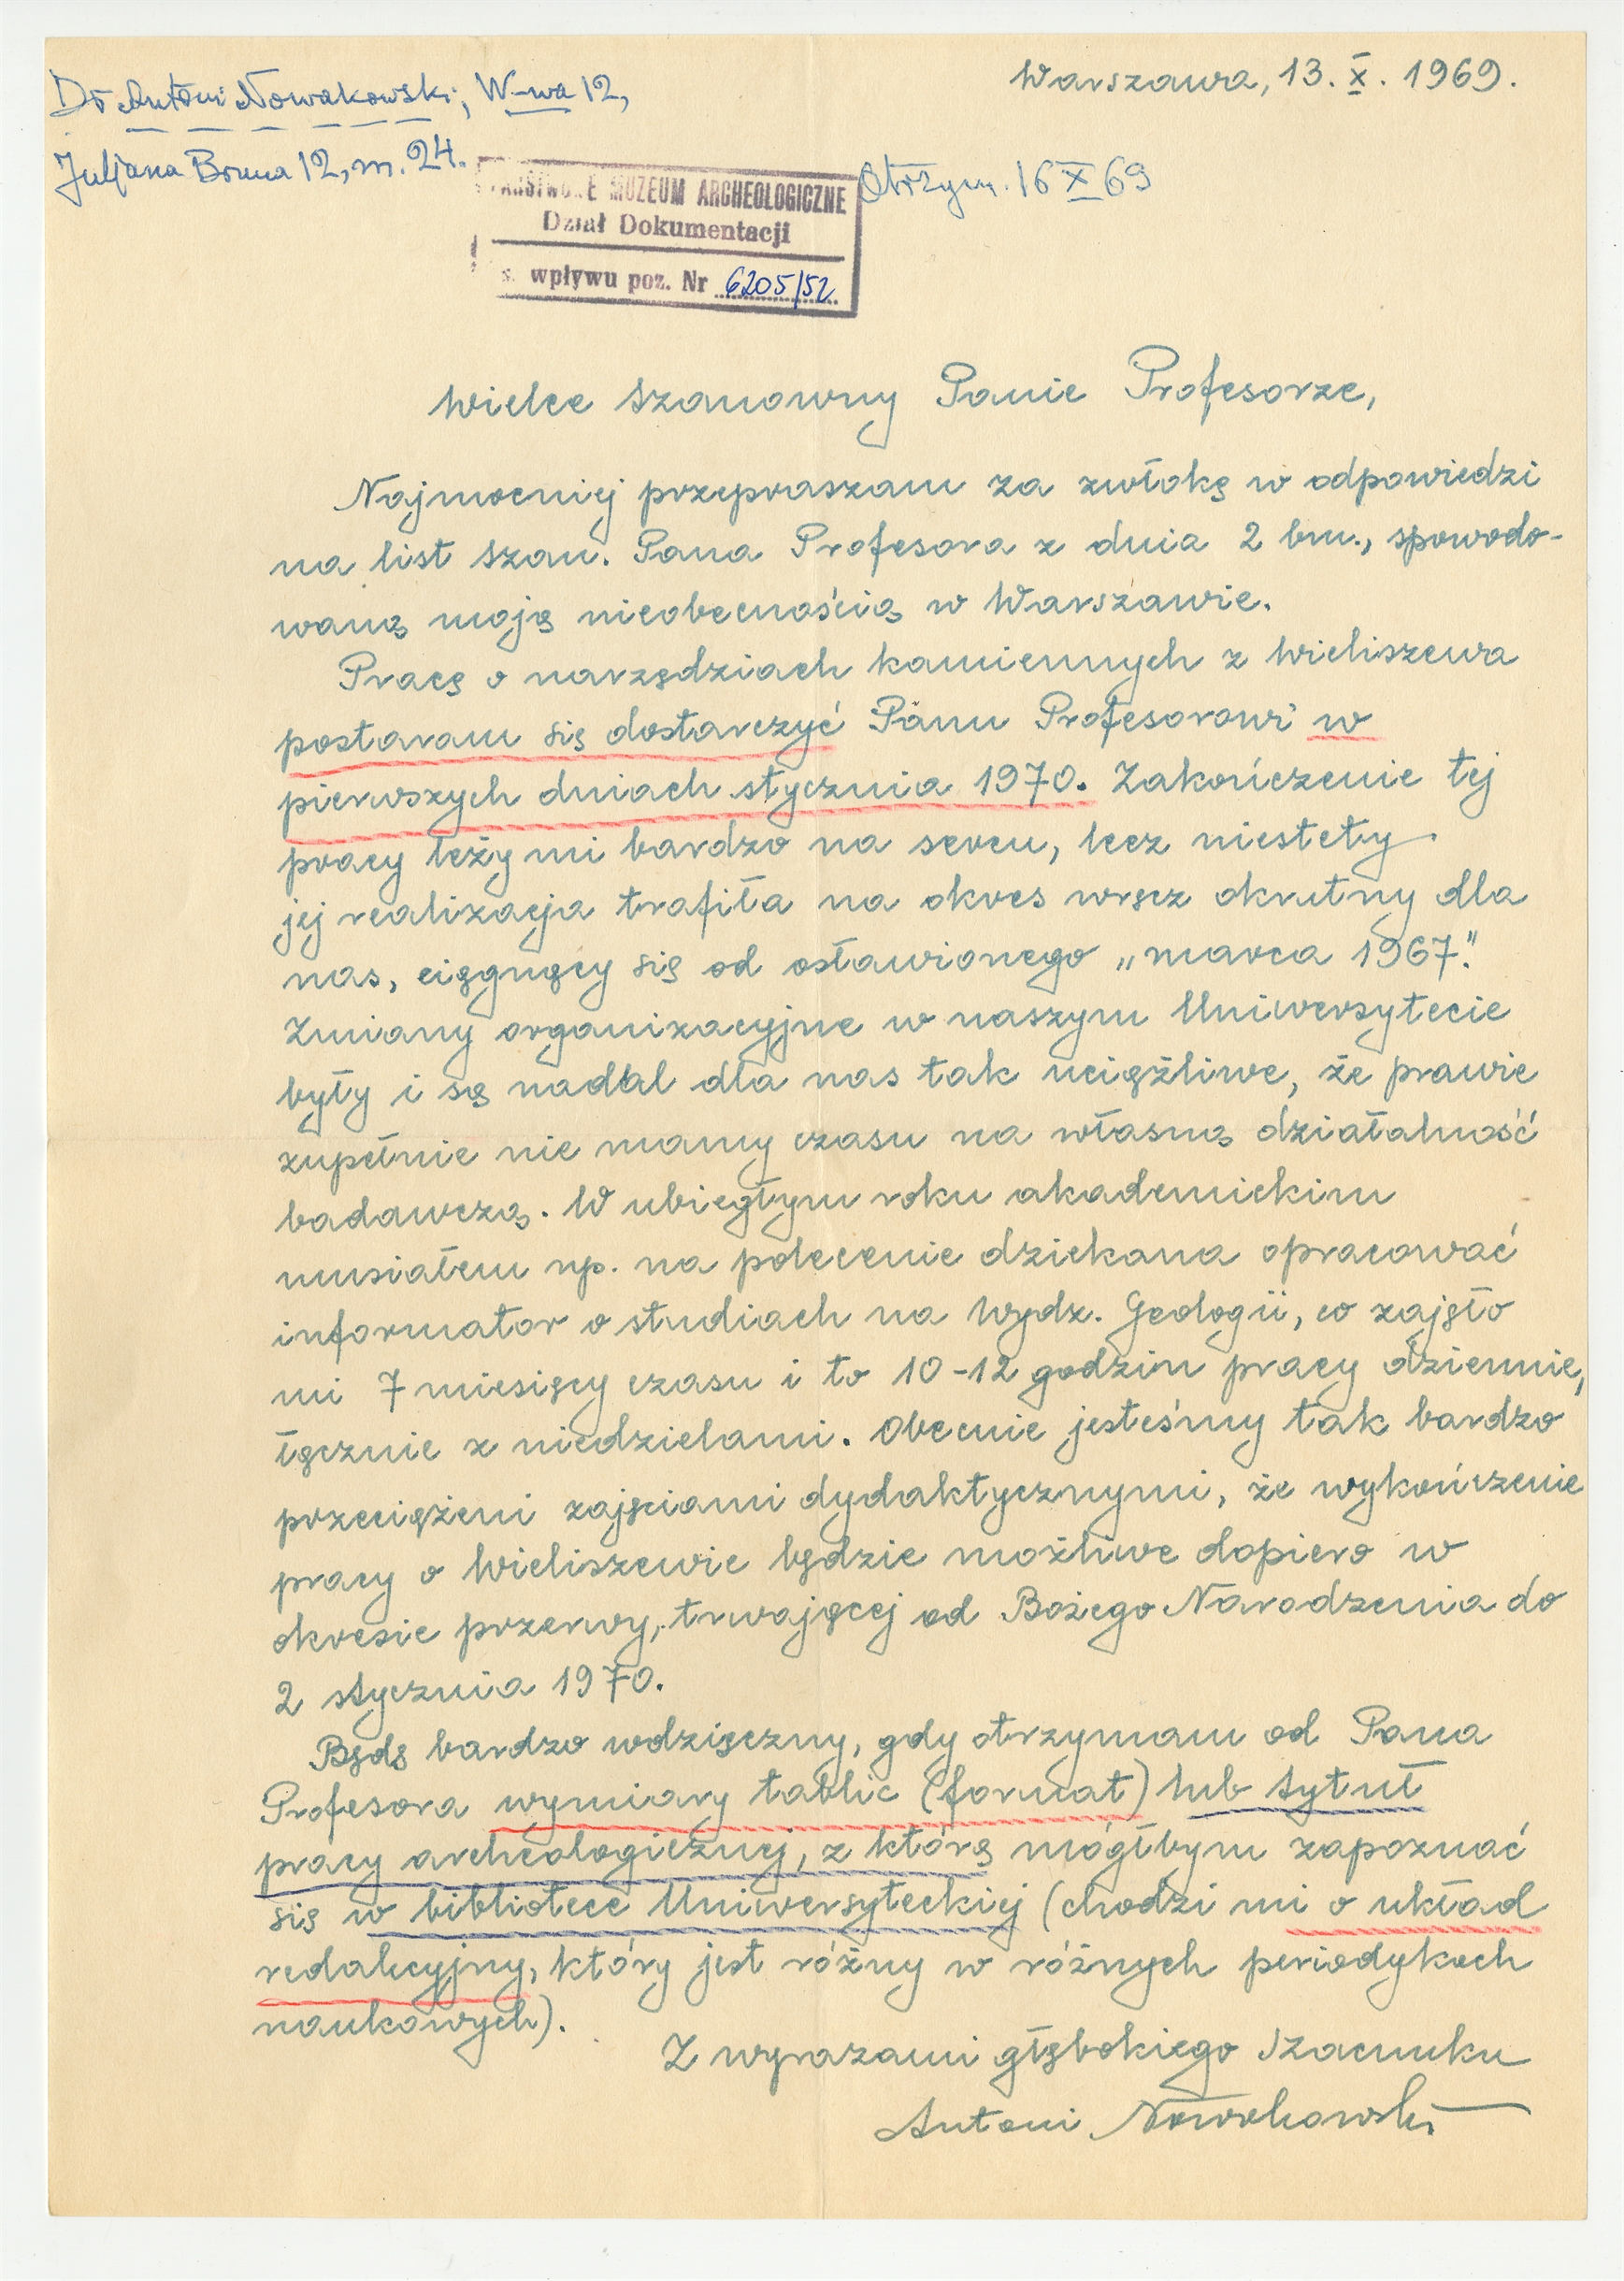 Warszawa, 13. X. 1969.
Dr Antoni Nowakowski, W-wa 12,
Juljana Bruna 12, m. 24.
Otrzym. 16 X 69
PAŃSTWOWE MUZEUM ARCHEOLOGICZNE
Dział Dokumentacji
s. wpływu poz. Nr 6205/52
Wielce Szanowny Panie Profesorze,
Najmocniej przepraszam za zwłokę w odpowiedzi
na list Szan. Pana Profesora z dnia 2 bm., spowodo-
waną moją nieobecnością w Warszawie.
Pracę o narzędziach kamiennych z Wieliszewa
postaram się dostarczyć Panu Profesorowi w
pierwszych dniach stycznia 1970. Zakończenie tej
pracy leży mi bardzo na sercu, lecz niestety
jej realizacja trafiła na okres wręcz okrutny dla
nas, ciągnący się od osławionego „marca 1967".
Zmiany organizacyjne w naszym Uniwersytecie
były i są nadal dla nas tak uciążliwe, że prawie
zupełnie nie mamy czasu na własną działalność
badawczą. W ubiegłym roku akademickim
musiałem np. na polecenie dziekana opracować
informator o studiach na Wydz. Geologii, co zajęło
mi 7 miesięcy czasu i to 10-12 godzin pracy dziennie,
łącznie z niedzielami. Obecnie jesteśmy tak bardzo
przeciążeni zajęciami dydaktycznymi, że wykończenie
pracy o Wieliszewie będzie możliwe dopiero w
okresie przerwy, trwającej od Bożego Narodzenia do
2 stycznia 1970.
Będę bardzo wdzięczny, gdy otrzymam od Pana
Profesora wymiary tablic (format) lub tytuł
pracy archeologicznej, z którą mógłbym zapoznać
się w bibliotece Uniwersyteckiej (chodzi mi o układ
redakcyjny, który jest różny w różnych periodykach
naukowych).
Z wyrazami głębokiego szacunku
Antoni Nowakowski